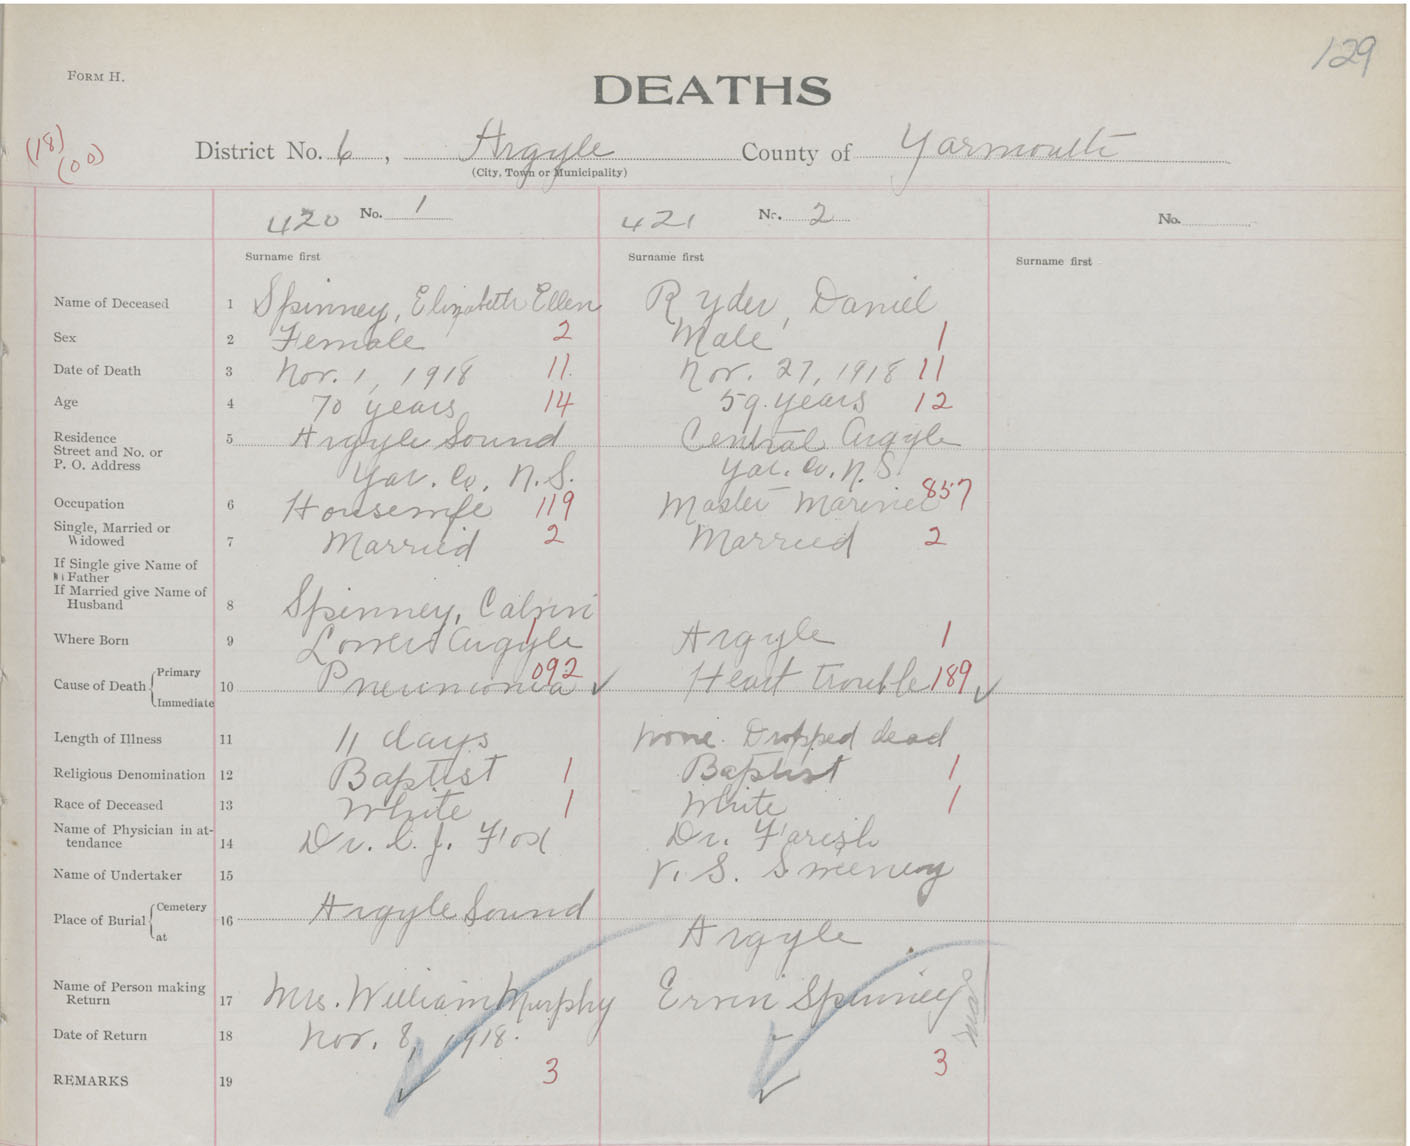 129
FORM H.
DEATHS
(18)
(00)
District No. 6, Argyle County of Yarmouth
(City, Town or Municipality)
420 No. 1 421 No. 2 No.
Surname first Surname first Surname first
Name of Deceased 1 Spinney, Elizabeth Ellen Ryder, Daniel
Sex 2 Female 2 Male 1
Date of Death 3 Nov. 1, 1918 11 Nov. 27, 1918 11
Age 4 70 years 14 59 years 12
Residence 5 Argyle Sound Central Argyle
Street and No. or
P. O. Address Yar. Co. N.S. Yar. Co. N.S.
Occupation 6 Housewife 119 Master Mariner 857
Single, Married or
Widowed 7 Married 2 Married 2
If Single give Name of
Father
If Married give Name of
Husband 8 Spinney, Calvin
Where Born 9 Lower Argyle 1 Argyle 1
Cause of Death { Primary Immediate 10 Pneumonia 092 ✓ Heart trouble 189 ✓
Length of Illness 11 11 days none. Dropped dead
Religious Denomination 12 Baptist 1 Baptist 1
Race of Deceased 13 White 1 White 1
Name of Physician in at-
tendance 14 Dr. C. J. Fox Dr. Farish
Name of Undertaker 15 V. S. Sweeney
Place of Burial { Cemetery at 16 Argyle Sound Argyle
Name of Person making
Return 17 Mrs. William Murphy Ervin Spinney
Date of Return 18 Nov. 8, 1918.
REMARKS 19 3 3